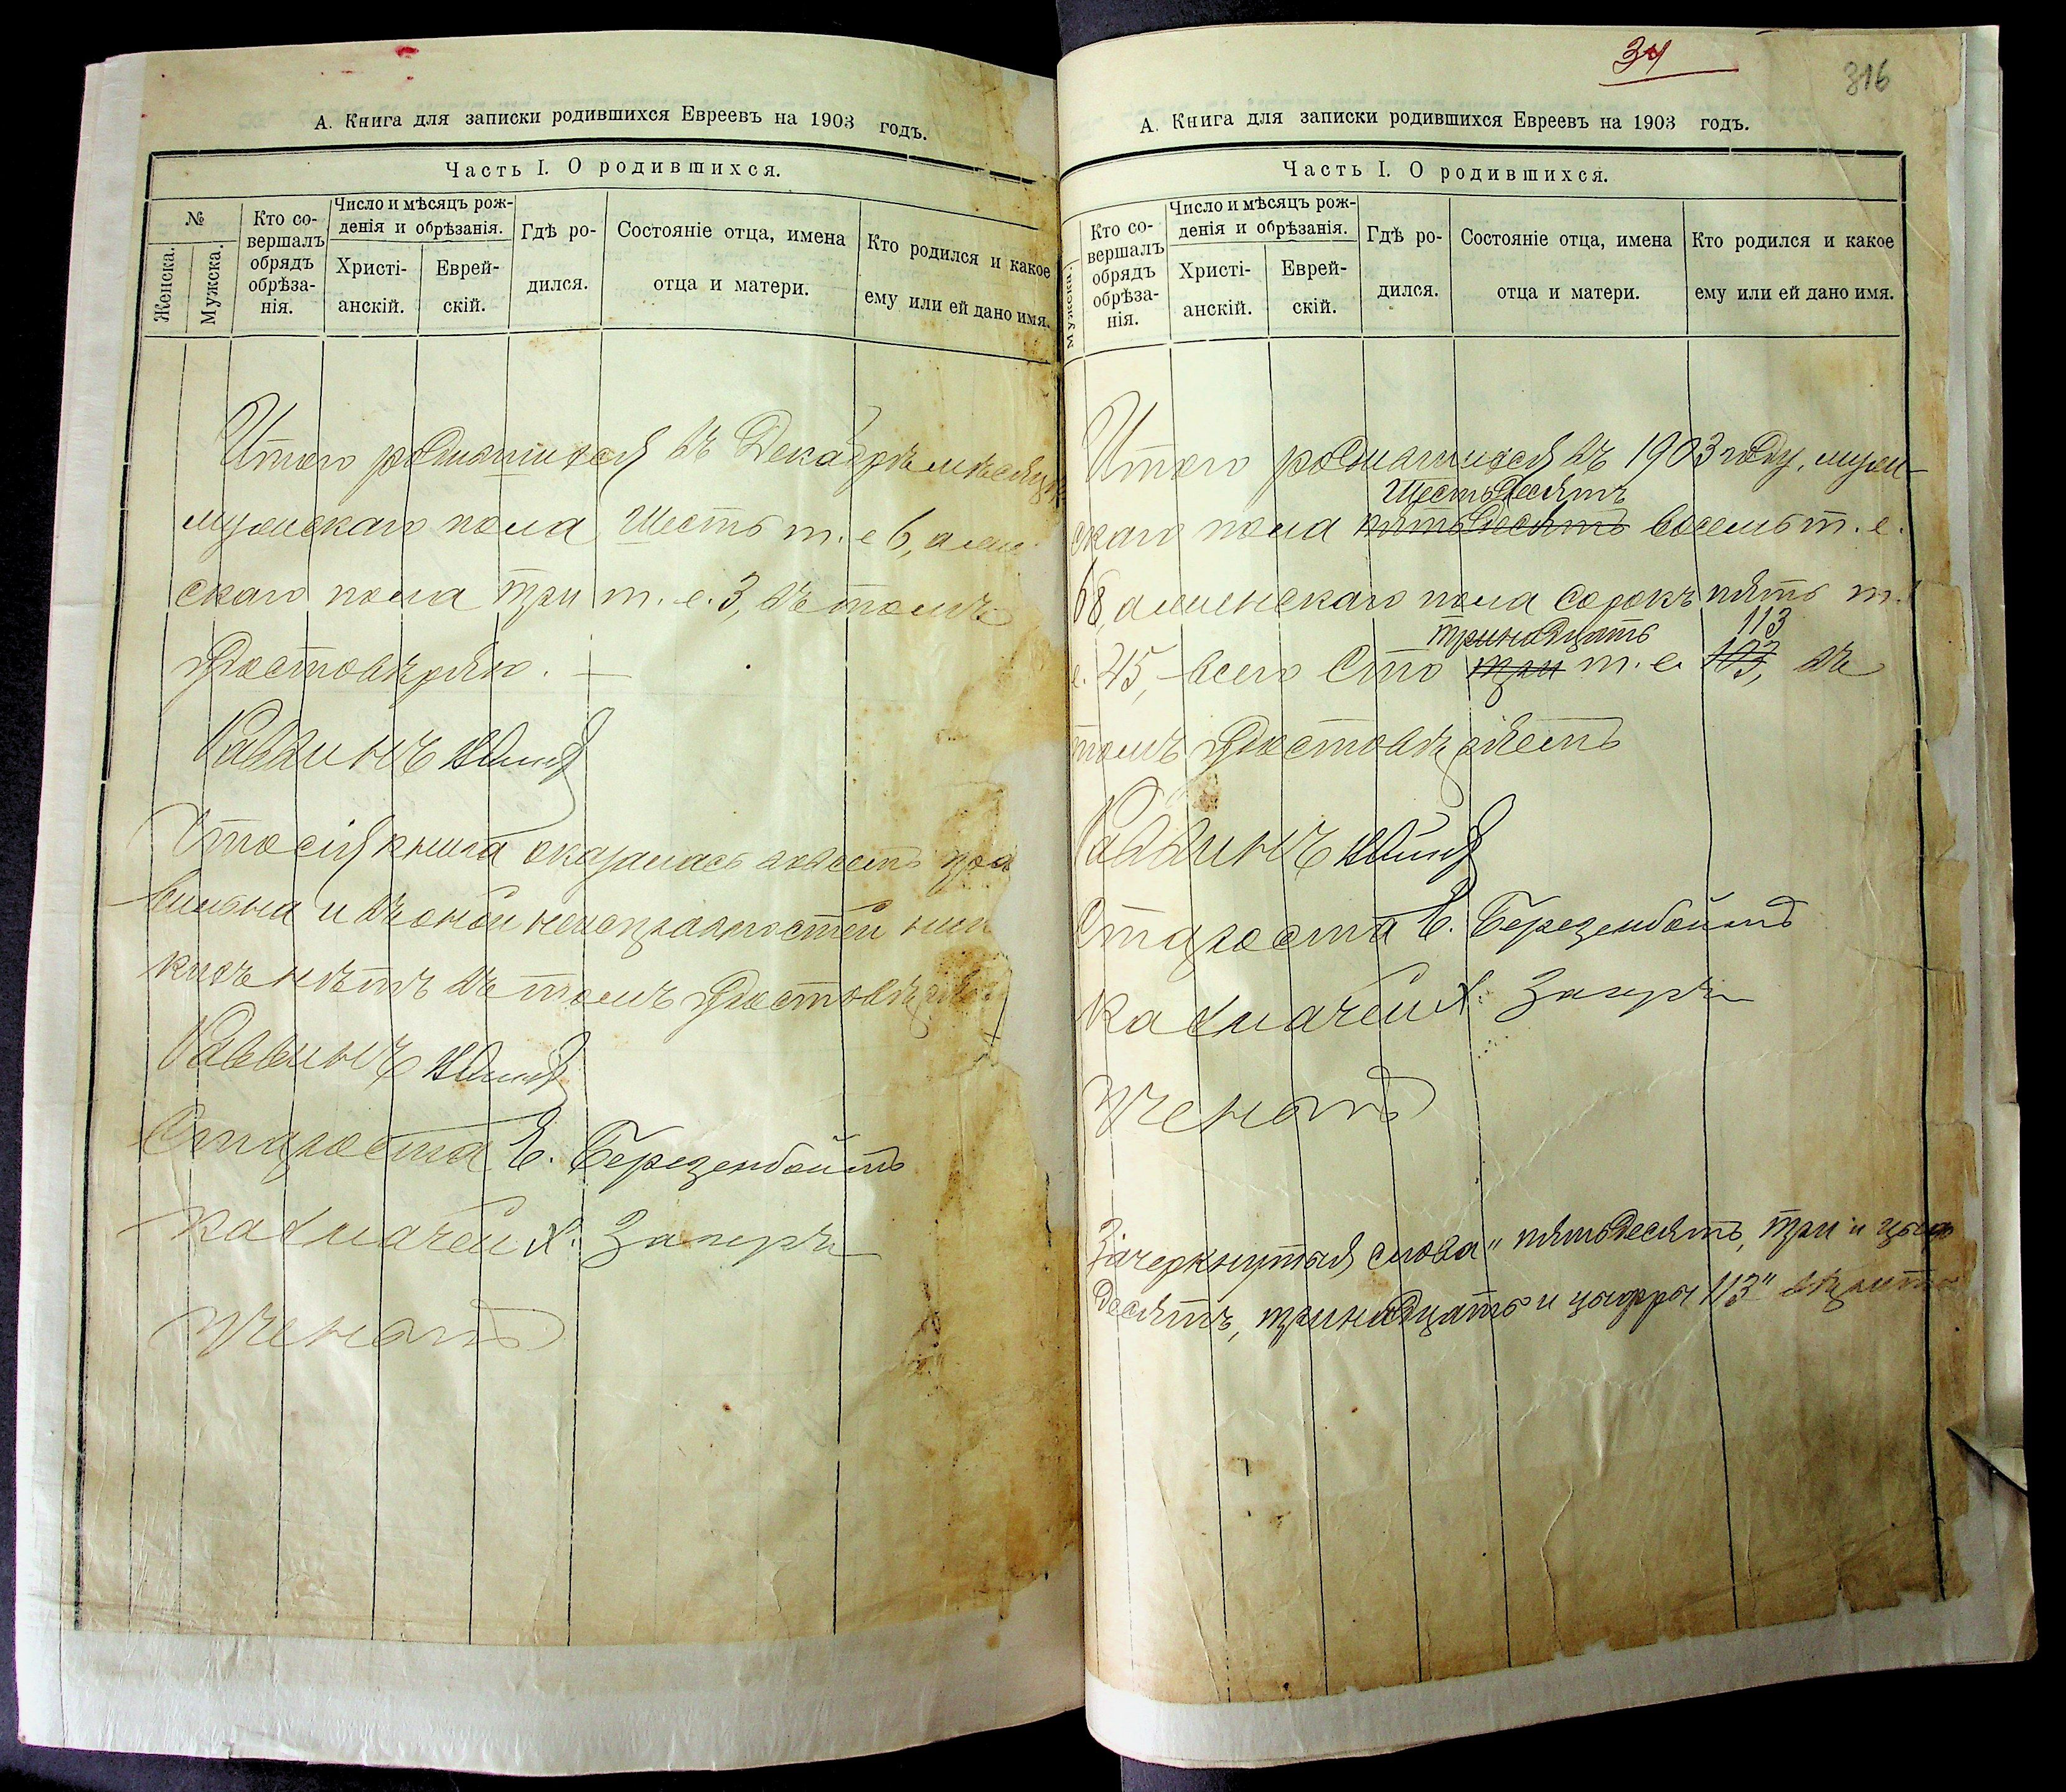 А. Книга для записки родившихся Евреевъ на 1903 годъ.
Часть I. О родившихся.
№
Женска.
Мужска.
Кто со-
вершалъ
обрядъ
обрѣза-
нія.
Число и мѣсяцъ рож-
денія и обрѣзанія.
Христі-
анскій.
Еврей-
скій.
Гдѣ ро-
дился.
Состояніе отца, имена
отца и матери.
Кто родился и какое
ему или ей дано имя.
Итого родившихся въ Декабрѣ мѣсяцѣ
мужскаго пола Шесть т. е 6, а жен
скаго пола три т. е. 3, въ томъ
удостовѣряю.
Раввинъ
Что сія книга оказалась
и въ оной неисправностей ник
кихъ нѣтъ въ томъ удостовѣря
Раввинъ
Староста Е. Березенбоймъ
Казначей Х.
Ученый
34
316
А. Книга для записки родившихся Евреевъ на 1903 годъ.
Часть I. О родившихся.
Мужска.
Кто со-
вершалъ
обрядъ
обрѣза-
нія.
Число и мѣсяцъ рож-
денія и обрѣзанія.
Христі-
анскій.
Еврей-
скій.
Гдѣ ро-
дился.
Состояніе отца, имена
отца и матери.
Кто родился и какое
ему или ей дано имя.
Итого родившихся въ 1903 году, муж-
Шестьдесятъ
скаго пола пятьдесятъ восемь т. е.
68, а женскаго пола сорокъ пять т.
тринадцать 113
е. 45, всего Сто три т. е. 103, въ
томъ удостовѣряетъ
Раввинъ
Староста Е. Березенбоймъ
Казначей Х.
Ученый
Зачеркнутыя слова „пятьдесятъ, три и
десятъ, тринадцать и цыфры 113"